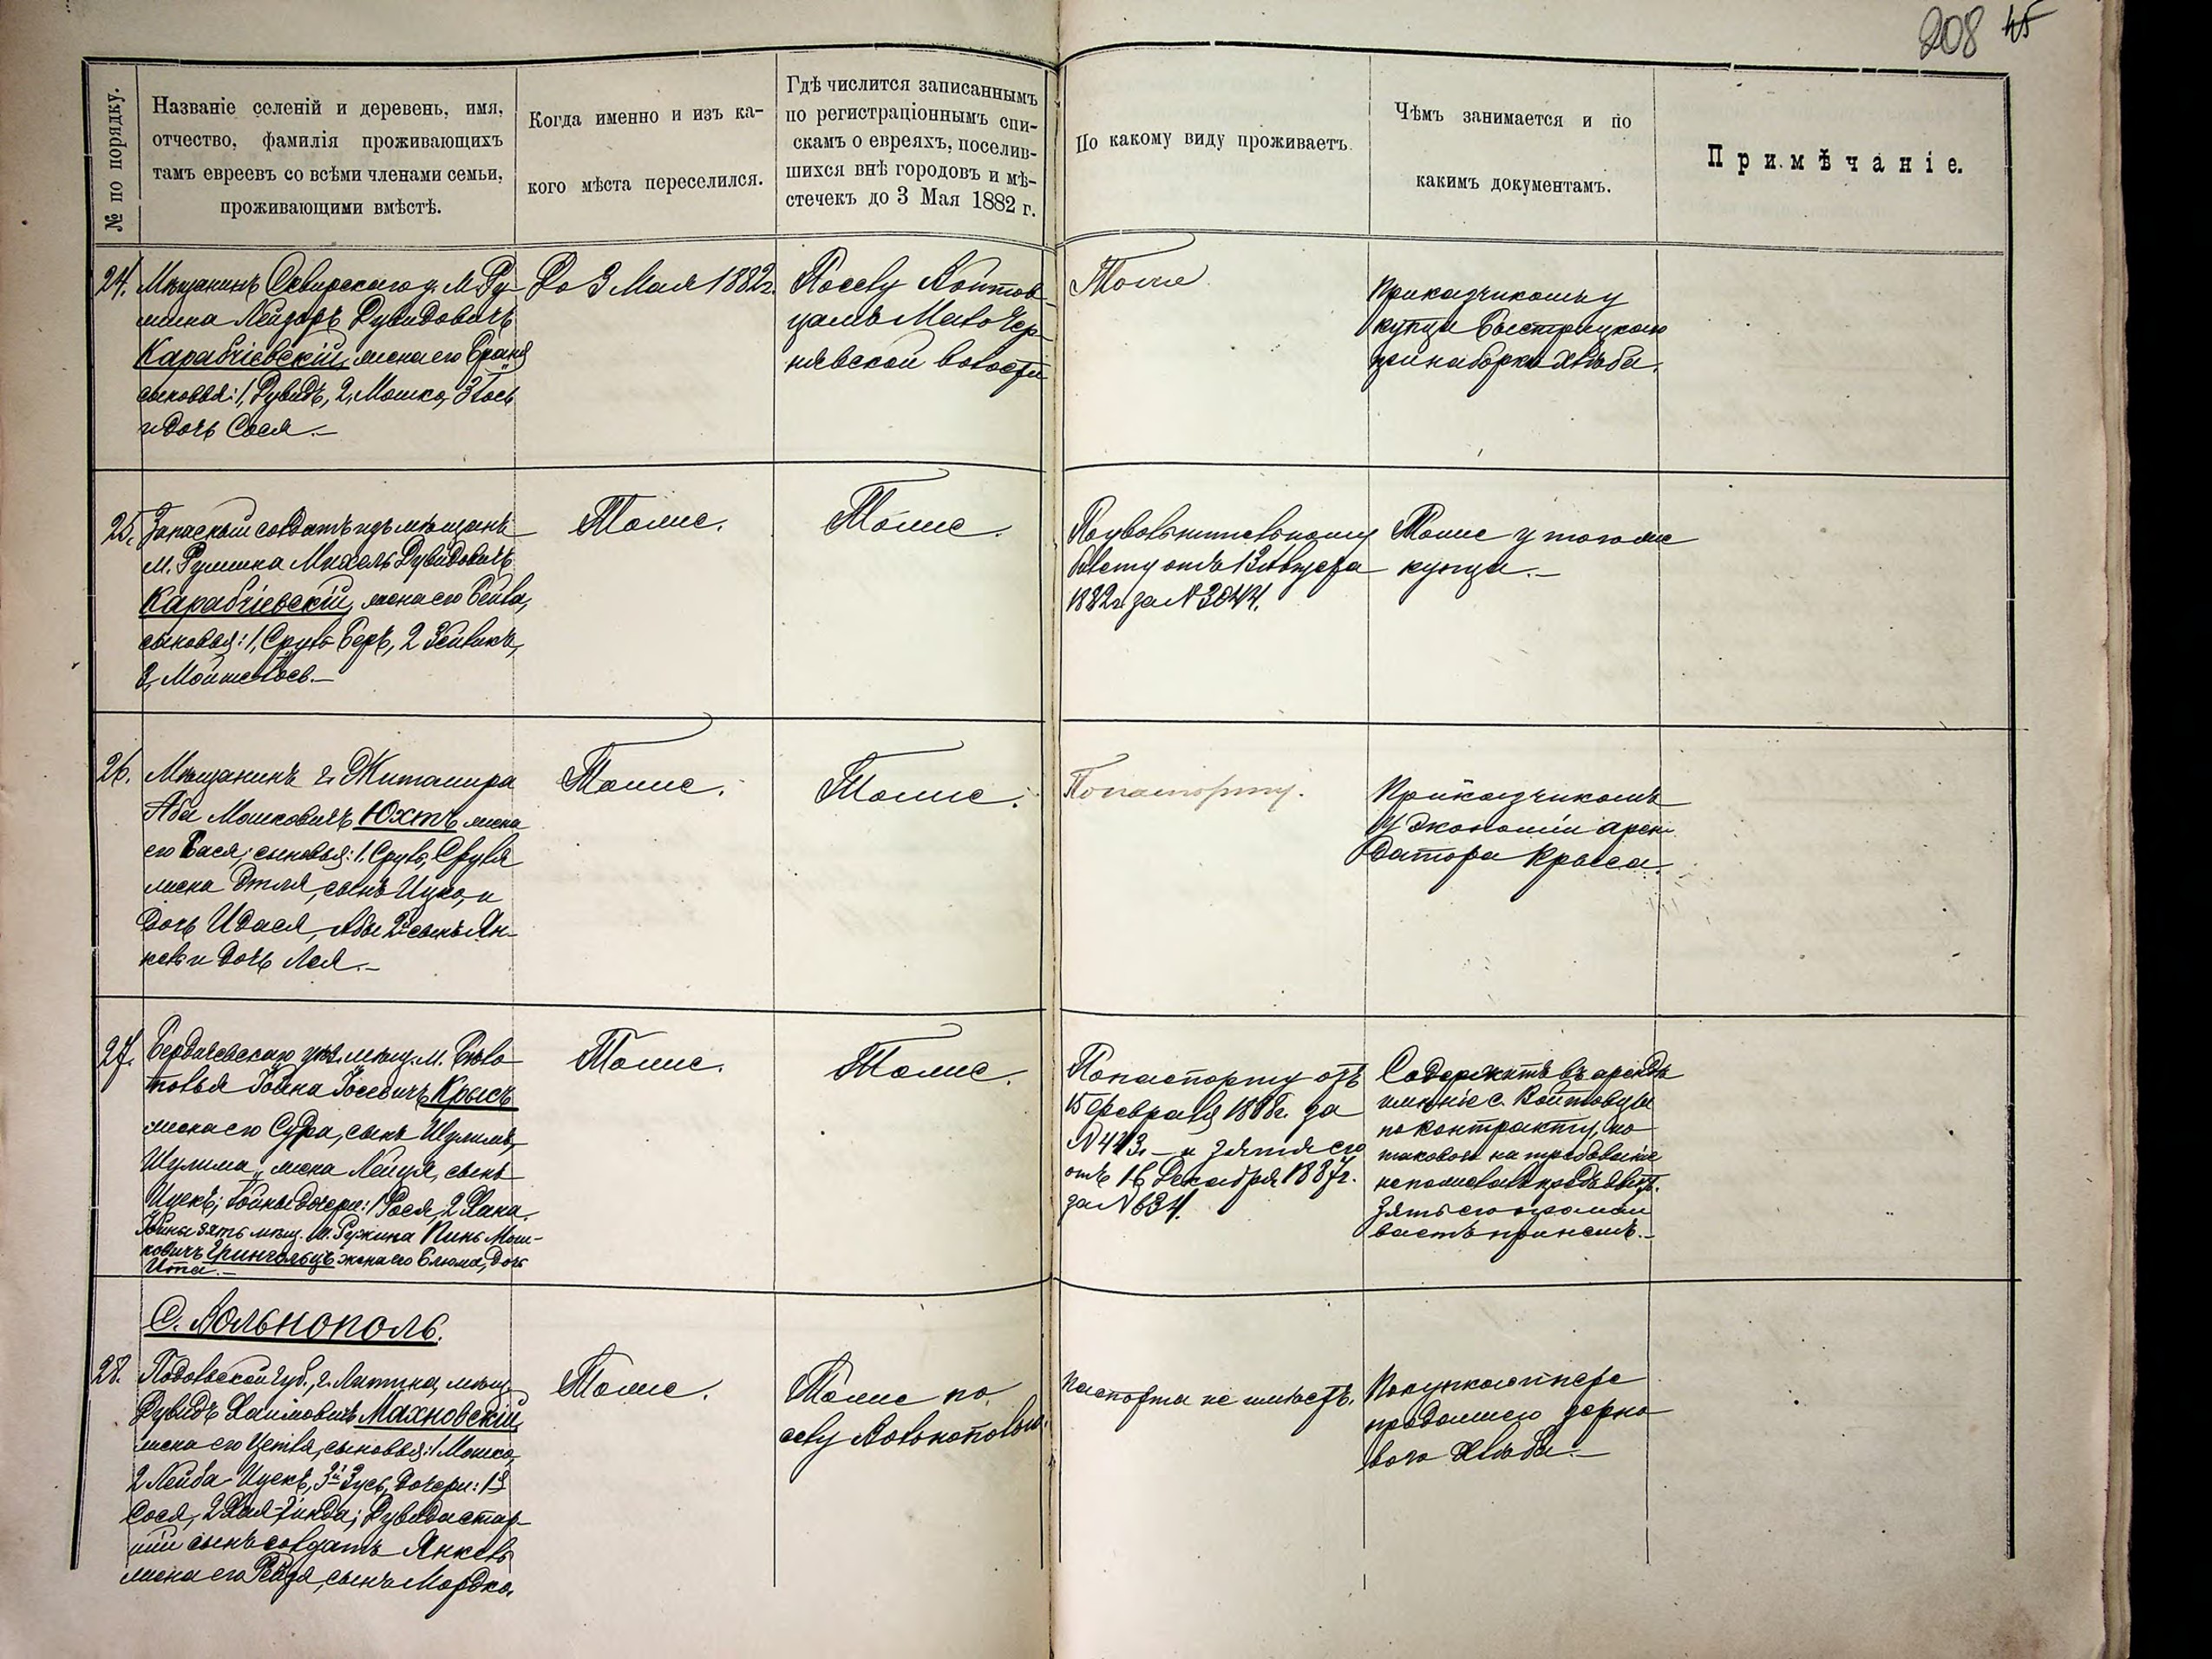 208 45
№ по порядку.
Названіе селеній и деревень, имя,
отчество, фамилія проживающихъ
тамъ евреевъ со всѣми членами семьи,
проживающими вмѣстѣ.
Когда именно и изъ ка-
кого мѣста переселился.
Гдѣ числится записаннымъ
по регистраціоннымъ спи-
скамъ о евреяхъ, поселив-
шихся внѣ городовъ и мѣ-
стечекъ до 3 Мая 1882 г.
По какому виду проживаетъ.
Чѣмъ занимается и по
какимъ документамъ.
Примѣчаніе.
24.
Мѣщанинъ Сквирскаго у. М. Ру-
жина Лейзоръ Дувидовичъ
Карабчіевскій, жена его Браня
сыновья: 1, Дувидъ, 2, Мошко, 3 Іось
и дочь Сося.—
До 3 Мая 1882 г.
По селу Войтов-
цамъ Мало Чер-
нявской волости
Тоже
Приказчикомъ у
купца Быстрицкаго
при наборки хлѣба.
25.
Запасный солдатъ изъ мѣщанъ
м. Ружина Михель Дувидовичъ
Карабчіевскій, жена его Бейла,
сыновья: 1, Сруль Беръ, 2 Зейликъ,
3, Мойше Іось.—
Тоже.
Тоже.
По увольнительному
билету отъ 13 Августа
1882 г. за № 3044.
Тоже у того же
купца.—
26.
Мѣщанинъ г. Житомира
Аба Мошковичъ Юхтъ жена
его Бася; сыновья: 1. Сруль, Сруля
жена Этля, сынъ Ицко, и
дочь Идася, Абы 2й сынъ Ян-
кель и дочь Лея.—
Тоже.
Тоже.
По паспорту.
Прикащикомъ
у экономіи арен-
датора Крыса.
27.
Бердичевскаго уѣз. мѣщ. м. Бѣло-
полья Іойна Іосевичъ Крысъ
жена его Сура, сынъ Шулимъ,
Шулима жена Лейця, сынъ
Ицекъ; Іойны дочери: 1 Рося, 2 Хана.
Іойны зять мѣщ. м. Ружина Пинь Мош-
ковичъ Грингольцъ жена его Блюма, дочь
Ита.—
Тоже.
Тоже.
По паспорту отъ
15 Февраля 1888 г. за
№ 413.— и зятя его
отъ 16 Декабря 1887 г.
за № 634.
Содержитъ въ арендѣ
имѣніе с. Войтовцы
по контракту, но
таковаго на требованіе
не пожелалъ предъявить.
Зять его
28.
С. Вольнополь.
Подольской губ., г. Литина, мѣщ.
Дувидъ Хаимовичъ Махновскій,
жена его Цетля, сыновья: 1 Мошко,
2 Лейба-Ицекъ, 3й Зусь, дочери: 1я
Сося, 2 Хая-Зинда; Дувида стар-
шій сынъ солдатъ Янкель
жена его Рейзя, сынъ Мордко.
Тоже.
Тоже по
селу Вольнополью.
Паспорта не имѣетъ.
Покупкою и пере
продажею зерно
вого хлѣба.—